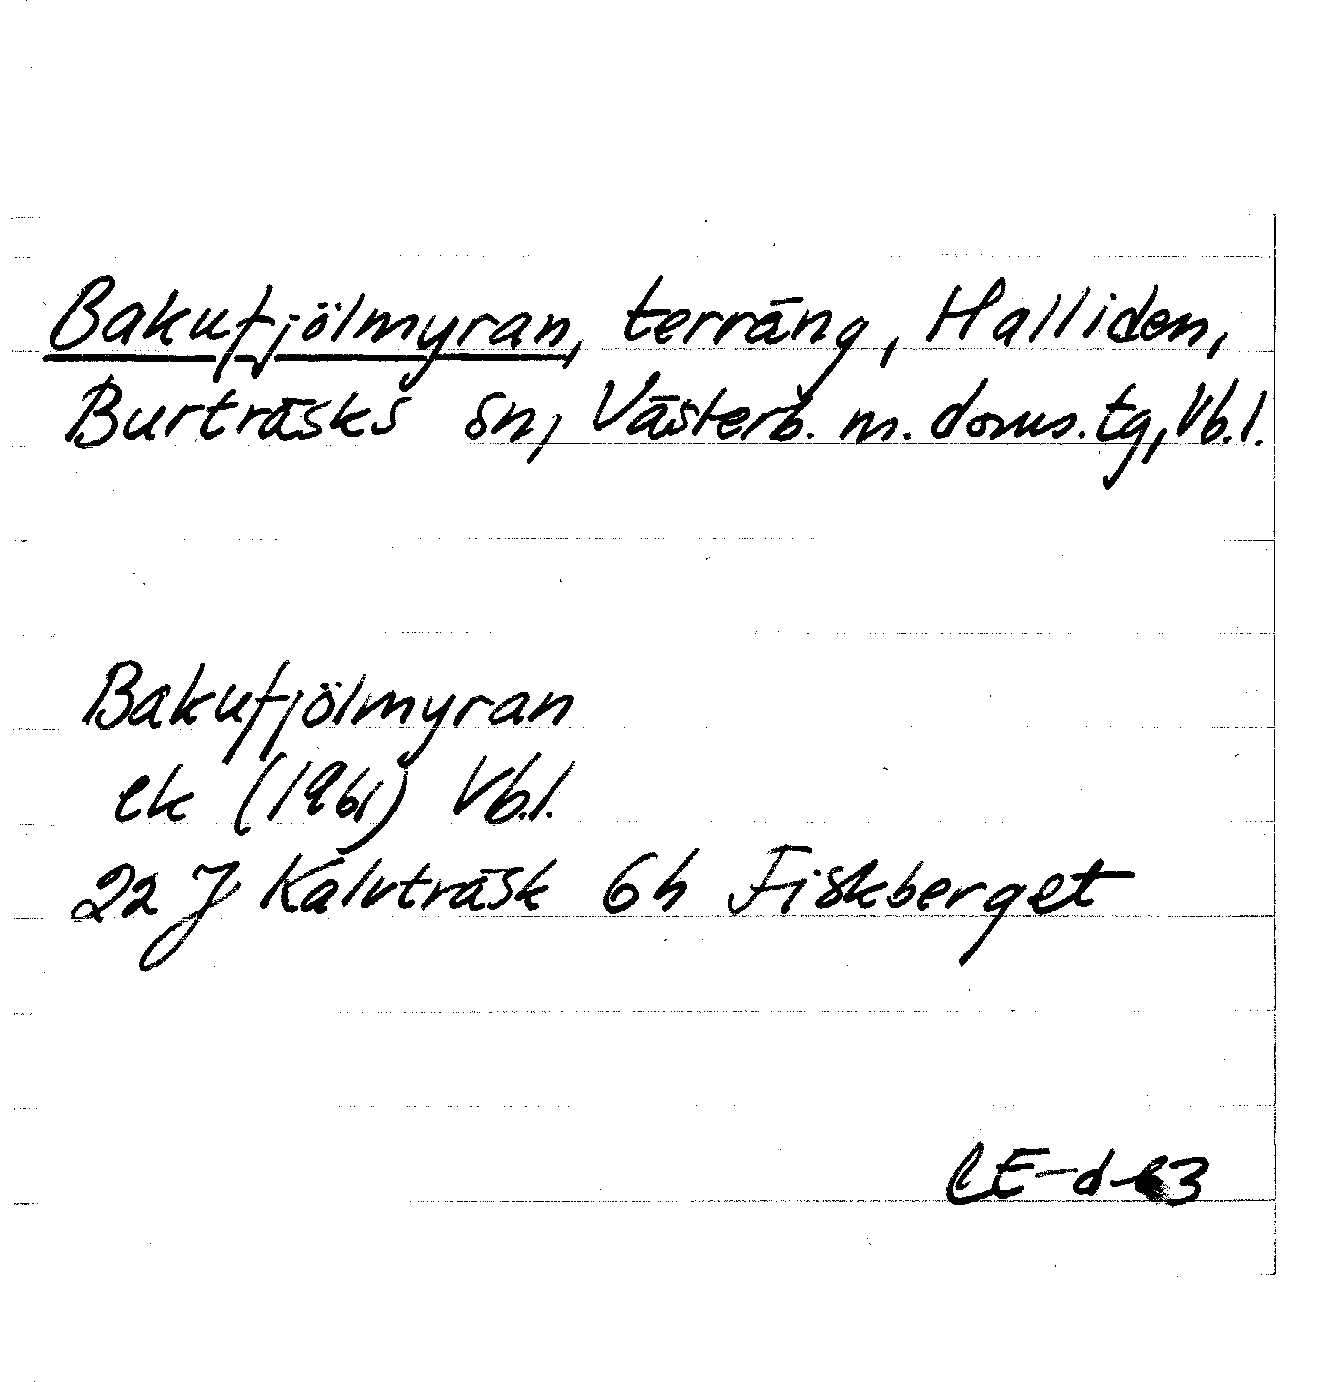 Bakufjölmyran, terräng, Halliden,
Burträsks sn, Västerb. m. doms. tg, Vb. l.
Bakufjölmyran
ek (1961) Vb.l.
22 J Kalvträsk 6h Fiskberget